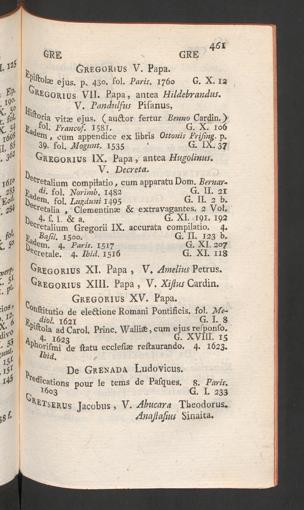 461
GRE GRE
GREGORIUS V. Papa.
Epistolæ ejus. p. 430. fol. Paris. 1760 G. X. 12
GREGORIUS VII. Papa, antea Hildebrandus.
V. Pandulfus Pisanus,
Historia vitæ ejus. (auctor fertur Benno Cardin.)
fol. Francof. 1581. G. X. 106
Eadem, cum appendice ex libris Ottonis Frising. p.
39. fol. Mogunt. 1535 G. IX. 37
GREGORIUS IX. Papa, antea Hugolinus.
V. Decreta.
Decretalium compilatio, cum apparatu Dom. Bernar-
di. fol. Norimb. 1482 G. II. 21
Eadem. fol. Lugduni 1495 G. II. 2 b.
Decretalia, Clementinæ & extravagantes. 2 Vol.
4. f. l. & a. G. XI. 191. 192
Decretalium Gregorii IX. accurata compilatio. 4.
Basil. 1500. G. II. 123 b.
Eadem. 4. Paris. 1517 G. XI. 207
Decretale. 4. Ibid. 1516 G. XI. 118
GREGORIUS XI. Papa, V. Amelius Petrus.
GREGORIUS XIII. Papa, V. Xistus Cardin.
GREGORIUS XV. Papa.
Constitutio de electione Romani Pontificis. fol. Me-
diol. 1621 G. I. 8
Epistola ad Carol. Princ. Walliæ, cum ejus responso.
4. 1623 G. XVIII. 15
Aphorismi de statu ecclesiæ restaurando. 4. 1623.
Ibid.
De GRENADA Ludovicus.
Predications pour le tems de Pasques. 8. Paris.
1603 G. I. 233
GRETSERUS Jacobus, V. Abucara Theodorus.
Anastasius Sinaita.